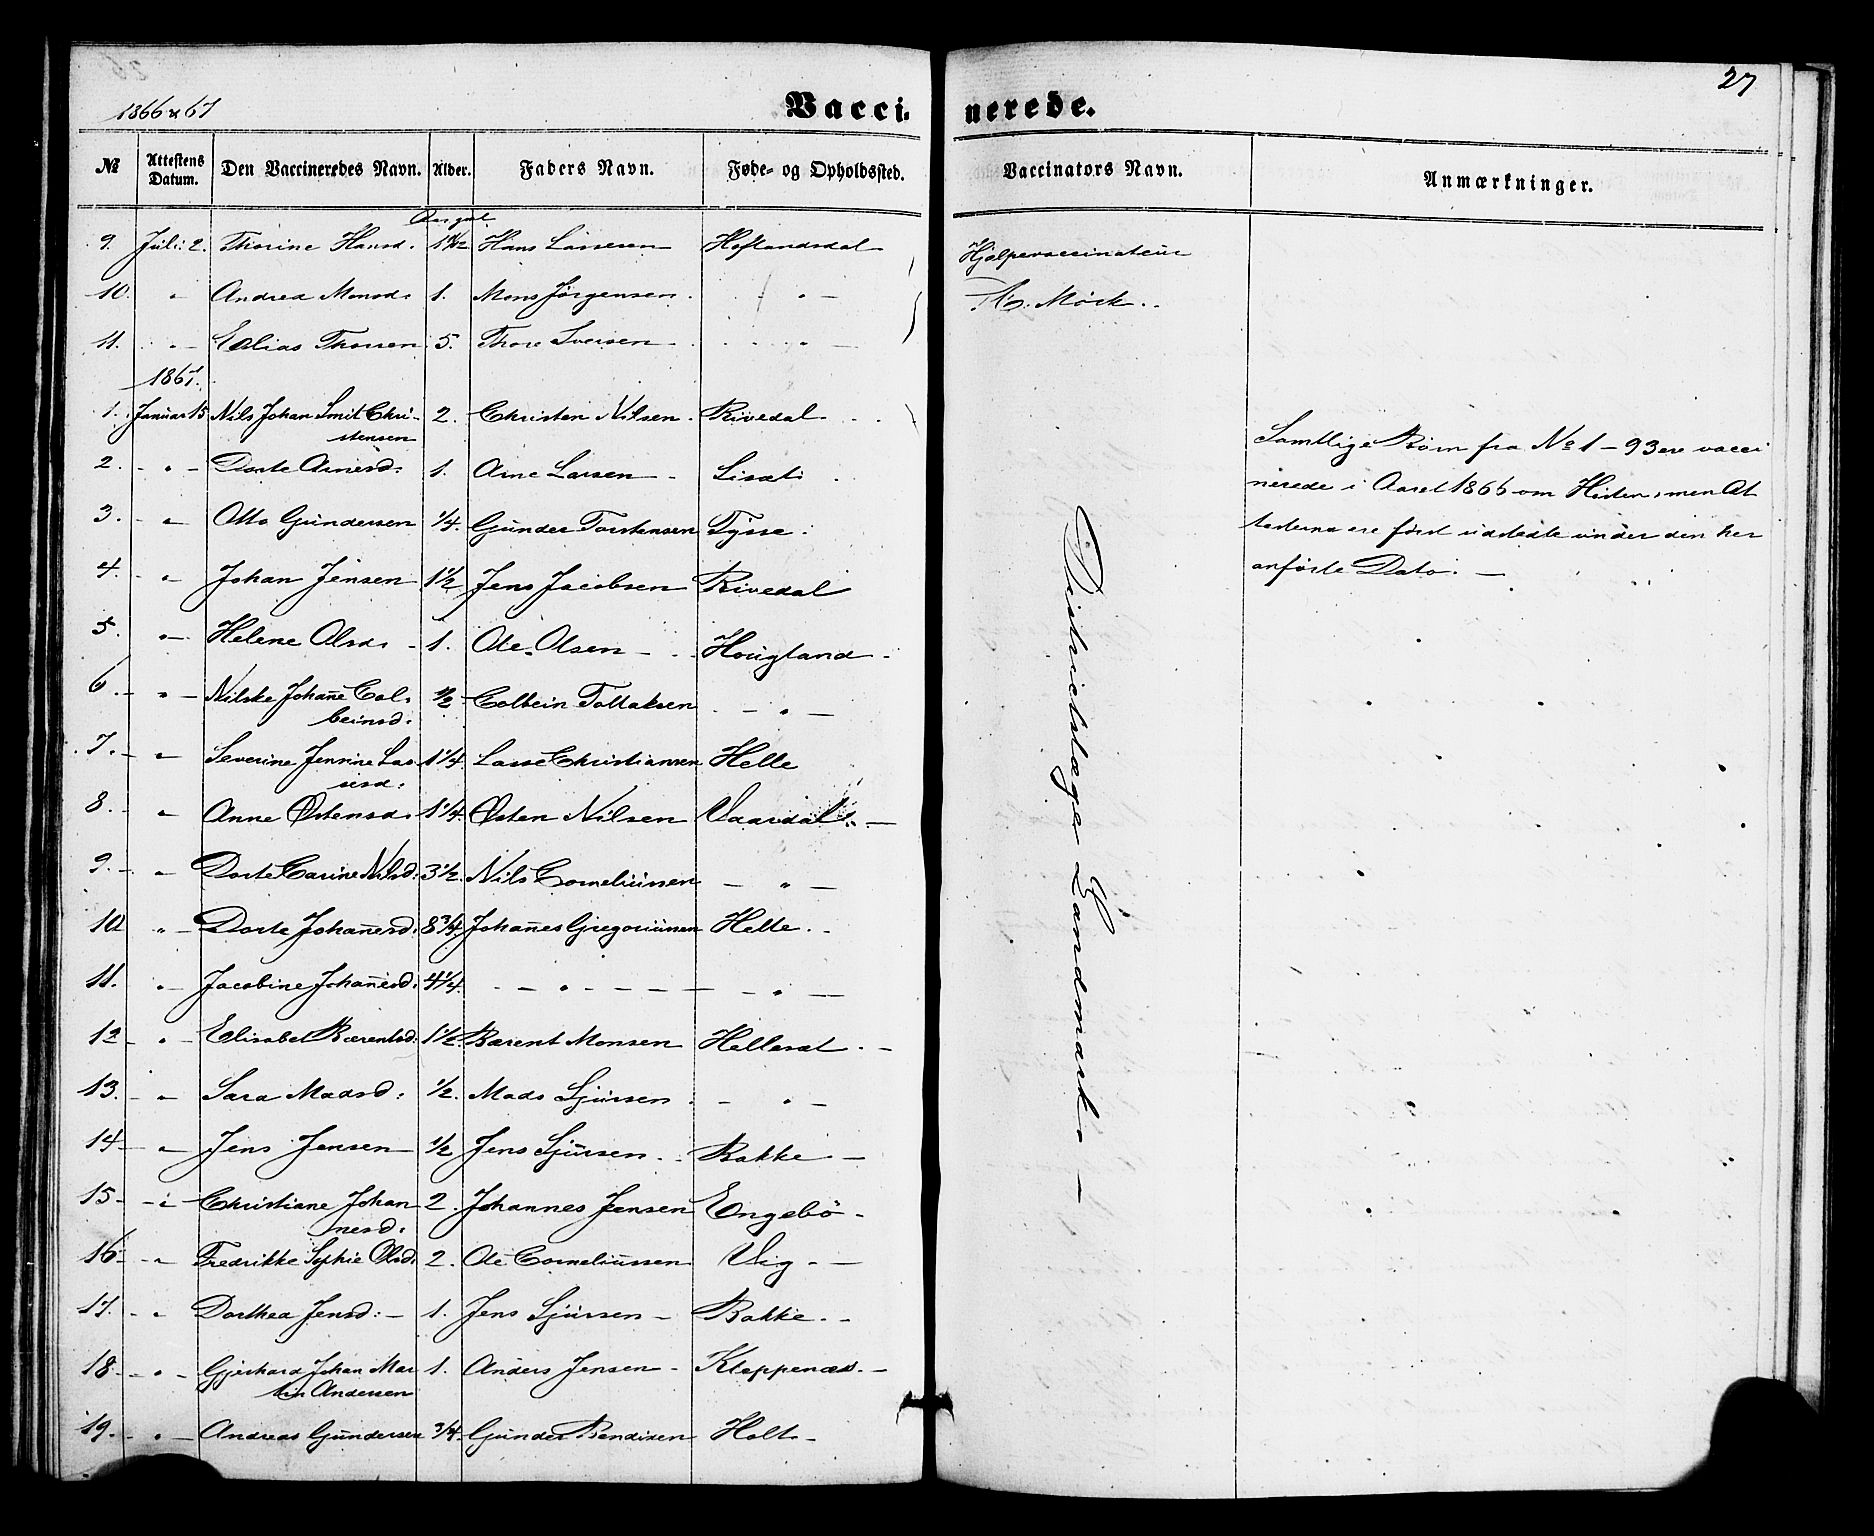 27
1866 & 67
Vaccinerede.
№ Attestens Datum. Den Vaccineredes Navn. Alder. Faders Navn. Føde- og Opholdssted. Vaccinators Navn. Anmærkninger.
Aar gml
9. Juli 2. Thorine Hansd. Hans Lassesen Hoflandsdal Hjælpevaccinateur
10. " Andrea Monsd. 1. Mons Jørgensen. " — Mörk.
11. " Elias Thorsen 5. Thore Iversen "
1867.
1. Januar 15 Nils Johan Smit Chri- 2. Christen Nilsen. Rivedal
stensen
2. " Dorte Arnesd. 1. Arne Larsen Lisæt
3. " Otto Gundersen 1/4. Gunder Torstensen Tysse.
4. " Johan Jensen 1½ Jens Jacobsen Rivedal
5. " Helene Olsd. 1. Ole Olsen Hougland
6. " Nilske Johañe Col- ½ Colbein Tollaksen "
beinsd.
7. " Severine Jennine Las- 1¼ Lasse Christiansen Helle
sesd.
8. " Anne Østensd. 1¼. Østen Nilsen Vaardal
9. " Dorte Carine Nilsd: 3½. Nils Corneliussen "
10 " Dorte Johañesd: 8¾. Johañes Gregoriussen Helle.
11. " Jacobine Johañesd: 4¼. " "
12 " Elisabet Bærentsd: 1½. Bærent Monsen Hellesæt.
13. " Sara Madsd: ½. Mads Sjursen "
14 " Jens Jensen ½ Jens Sjursen. Bakke
15 " Christiane Johan 2. Johannes Jensen Engebö
nesd.
16 " Fredrikke Sophie Olsd: 2. Ole Corneliussen Vig.
17. " Dorthea Jensd: 1. Jens Sjursen Bakke.
18 " Gjerhard Johan Mar 1. Anders Jensen Kleppenæs.
tin Andersen
19. " Andreas Gundersen ¾. Gunder Bendixen Holt
Districtslæge Landmark.
Samtlige Börn fra № 1 – 93 ere vacci
nerede i Aaret 1866 om Hösten, men At
testerne ere först udstedte under den her
anförte Dato.